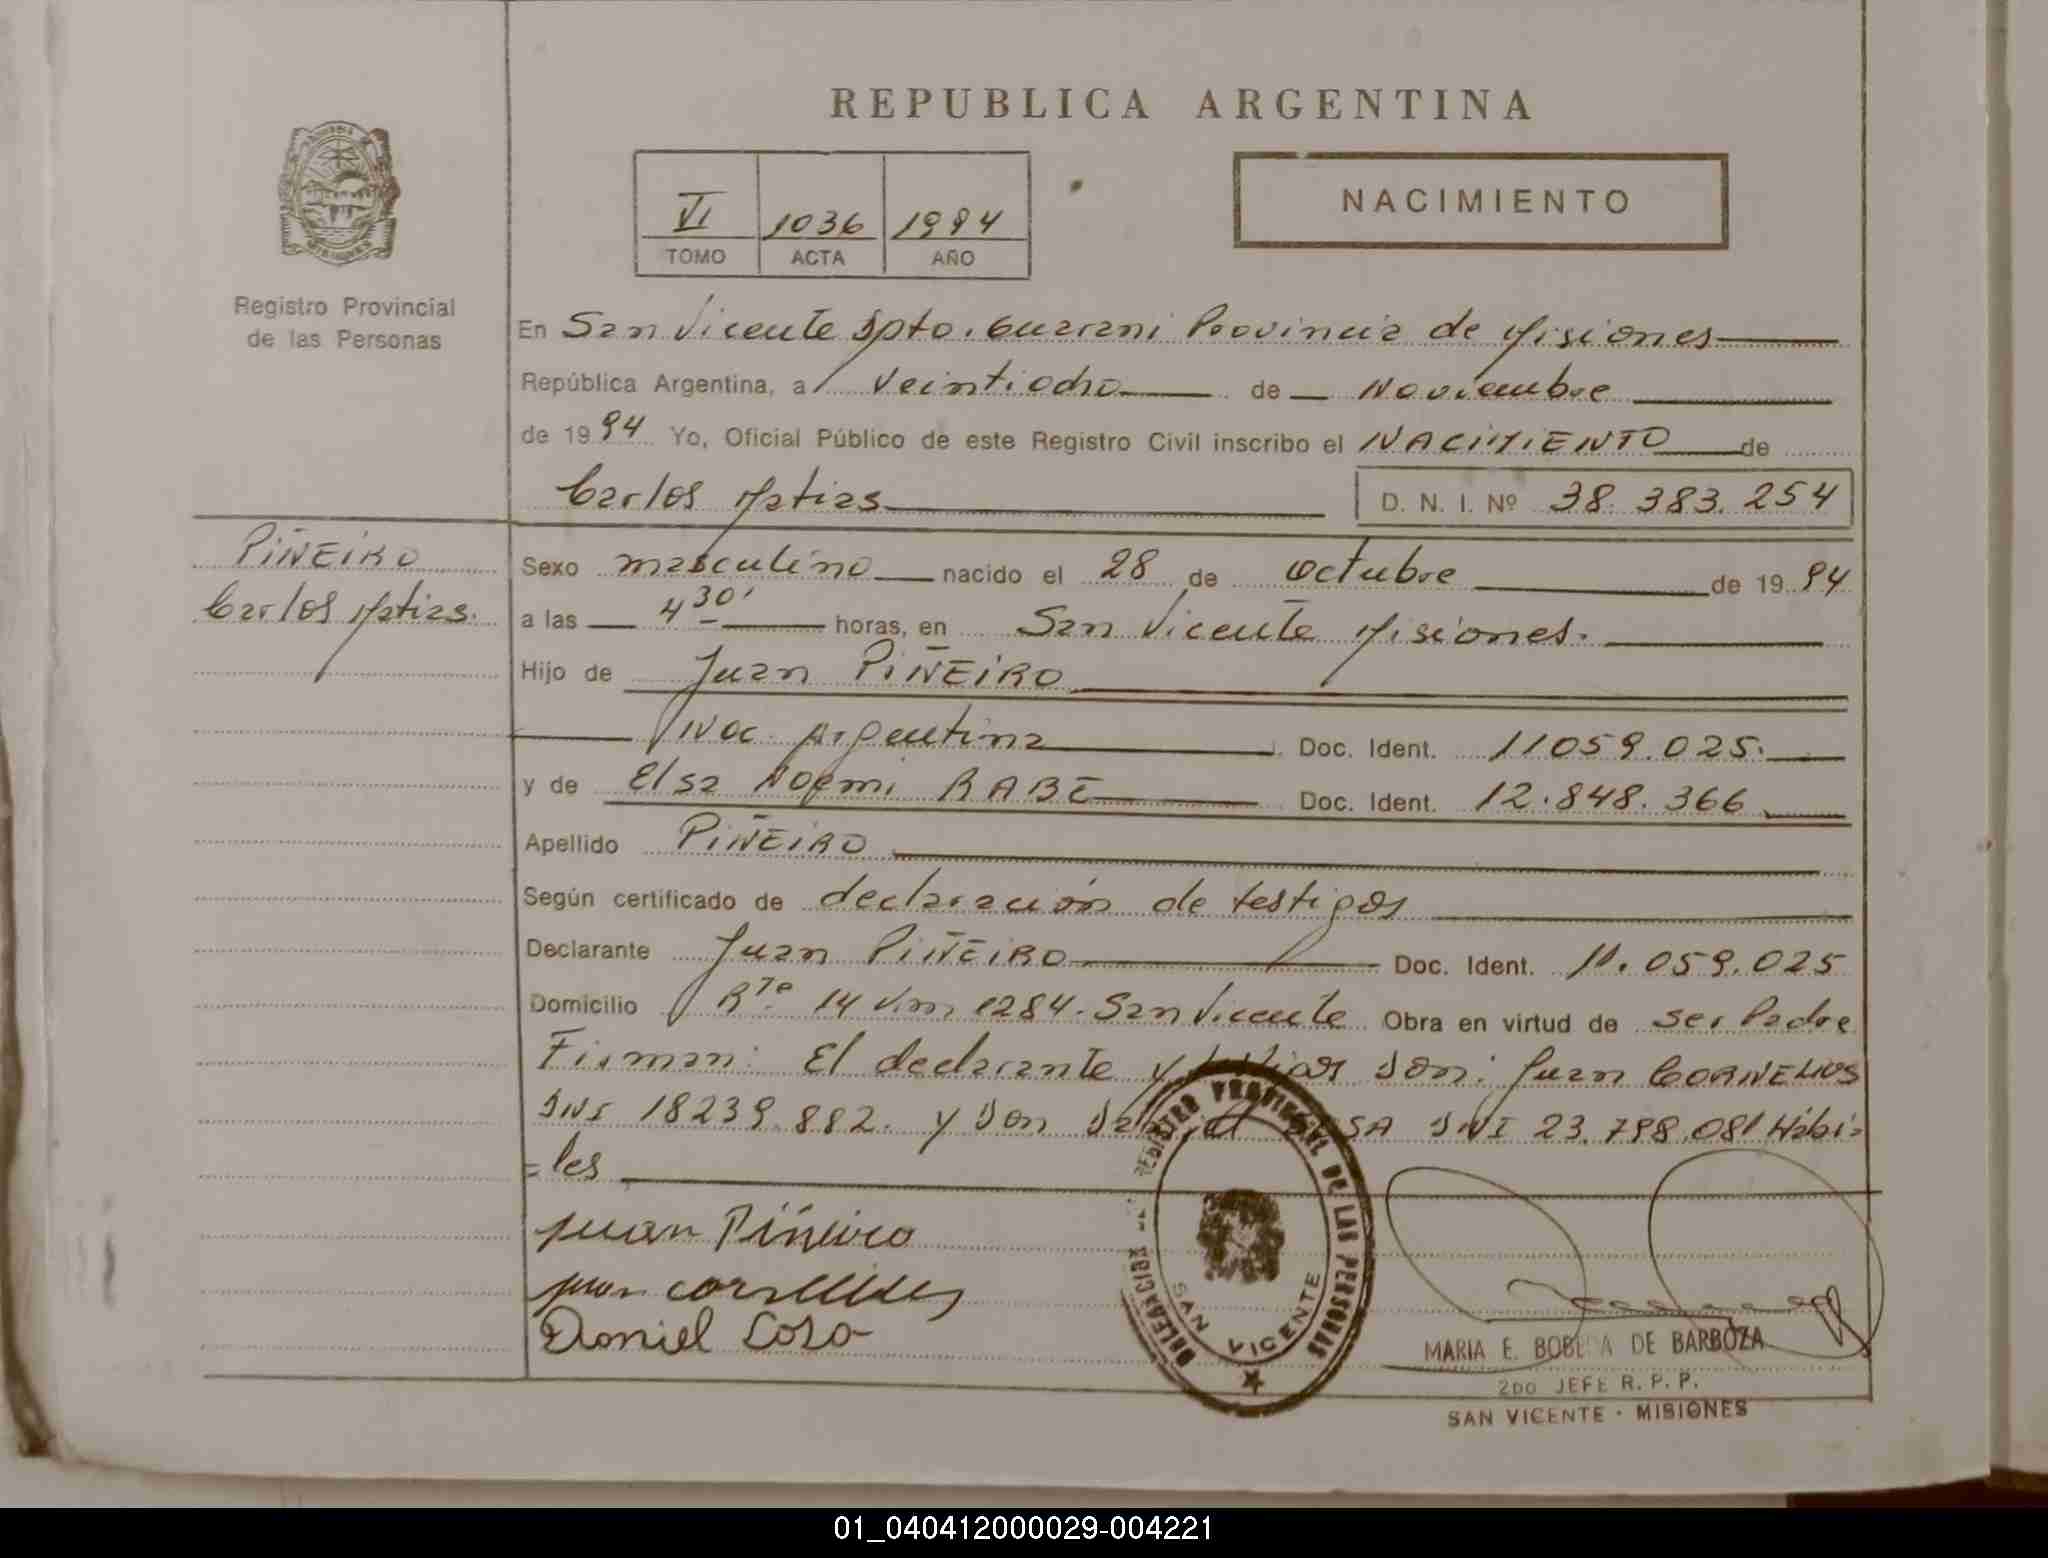 REPUBLICA ARGENTINA
VI 1036 1994
TOMO ACTA AÑO
NACIMIENTO
Registro Provincial
de las Personas
En San Vicente Dpto. Guarani Provincia de Misiones
República Argentina, a Veintiocho de Noviembre
de 1994 Yo, Oficial Público de este Registro Civil inscribo el NACIMIENTO de
Carlos Matias D. N. I. Nº 38.383.254
PIÑEIRO
Carlos Matias.
Sexo masculino nacido el 28 de octubre de 1994
a las 4 30' horas, en San Vicente Misiones.
Hijo de Juan PIÑEIRO
Nac. Argentina Doc. Ident. 11059.025.
y de Elsa Noemi RABE Doc. Ident. 12.848.366
Apellido PIÑEIRO
Según certificado de declaración de testigos
Declarante Juan PIÑEIRO Doc. Ident. 11.059.025
Domicilio Rta. 14 1284. San Vicente Obra en virtud de ser Padre
Firman: El declarante y testigos Don: Juan CORNELIUS
DNI 18239.882. y Don Daniel SOSA DNI 23.798.081 Hábi=
=les
Juan Piñeiro
juan cornelius
Daniel Soso
DELEGACION DEL REGISTRO PROVINCIAL DE LAS PERSONAS
SAN VICENTE
MARIA E. BOBEDA DE BARBOZA
2DO JEFE R. P. P.
SAN VICENTE - MISIONES
01_040412000029-004221